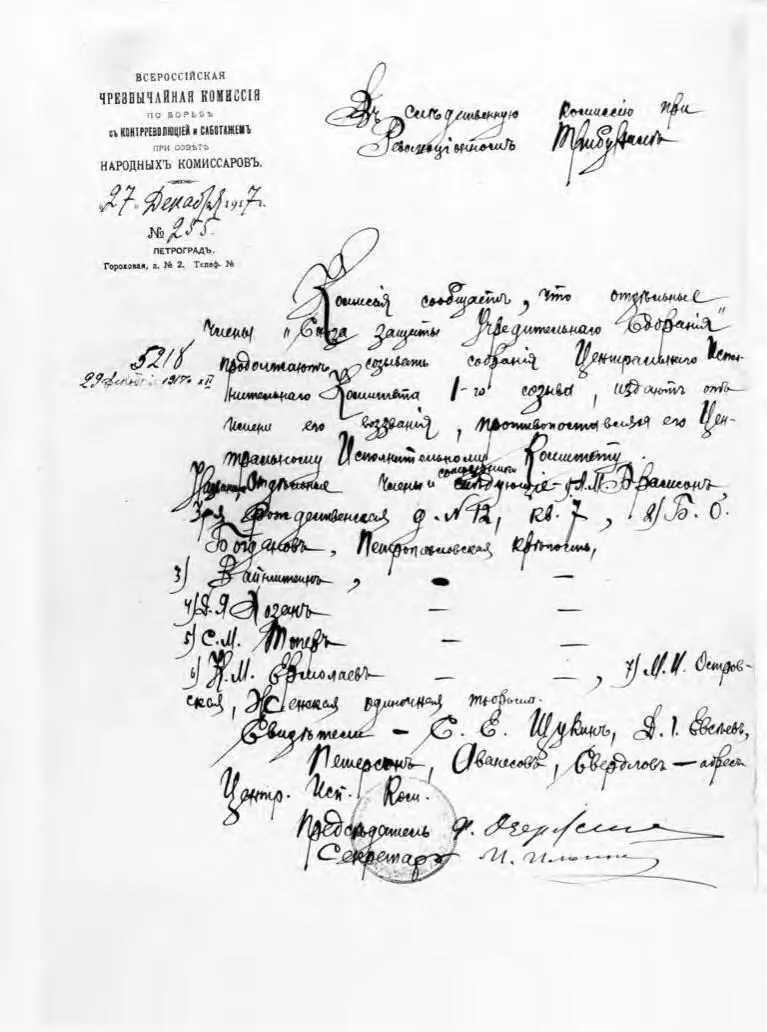 ВСЕРОССІЙСКАЯ
ЧРЕЗВЫЧАЙНАЯ КОМИССІЯ
ПО БОРЬБѢ
съ КОНТРРЕВОЛЮЦІЕЙ и САБОТАЖЕМЪ
ПРИ СОВѢТѢ
НАРОДНЫХЪ КОМИССАРОВЪ.
"27" Декабря 1917 г.
№ 255.
ПЕТРОГРАДЪ.
Гороховая, д. № 2. Телеф. №
Въ слѣдственную комиссію при
Революціонномъ Трибуналѣ
Комиссія сообщаетъ, что отдѣльные
члены "Союза защиты Учредительнаго Собранія"
5218
продолжаютъ созывать собранія Центральнаго Испол-
29 1917 XII
нительнаго Комитета 1-го созыва, издаютъ отъ
имени его воззванія, противопоставляя его Цен-
тральному Исполнительному Комитету.
Отдѣльные члены слѣдующіе - 1) А. М.
3-я Рождественская д. № 12, кв. 7, 2) Б. О.
Богдановъ, Петропавловская крѣпость,
3) Вайнштейнъ, — —
4) Д. Я — —
5) С. М. — —
6) К. М. Ермолаевъ — —, 7) М. И. Островская,
Женская одиночная тюрьма.
Свидѣтели - С. Е. Щукинъ, Д. І. Евсѣевъ,
Петерсонъ, Аванесовъ, Свердловъ — адресъ
Центр. Исп. Ком.
Предсѣдатель Ф. Дзержинскій
Секретарь И. Ильинъ